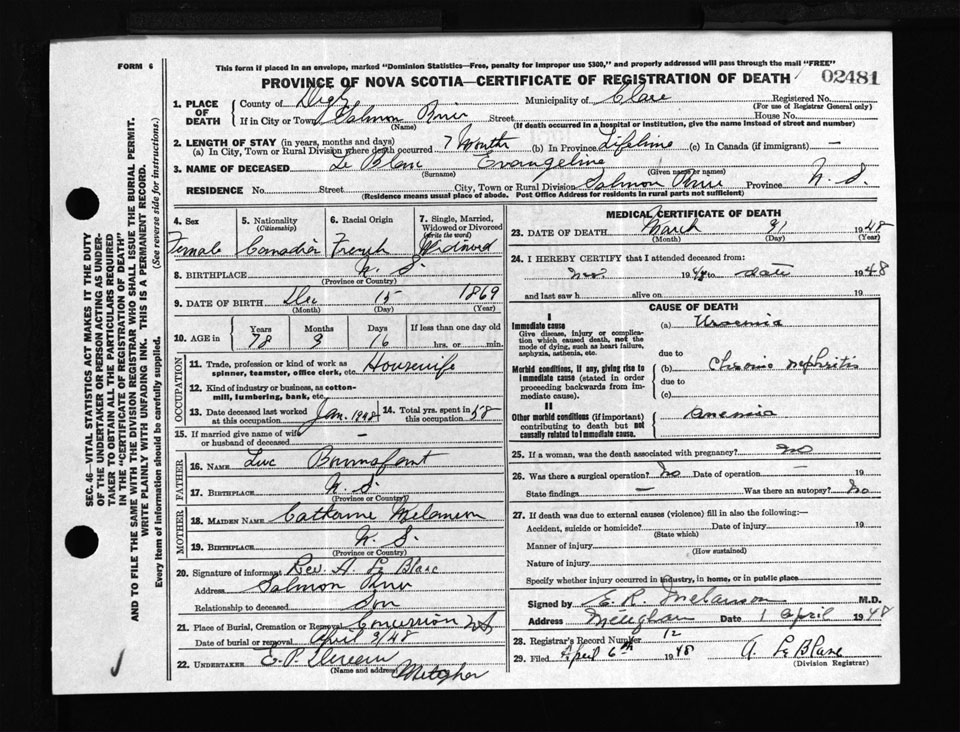 FORM 6
This form if placed in an envelope, marked "Dominion Statistics—Free, penalty for improper use $300," and properly addressed will pass through the mail "FREE"
PROVINCE OF NOVA SCOTIA—CERTIFICATE OF REGISTRATION OF DEATH
02481
SEC. 46—VITAL STATISTICS ACT MAKES IT THE DUTY
OF THE UNDERTAKER OR PERSON ACTING AS UNDER-
TAKER TO OBTAIN ALL THE PARTICULARS REQUIRED
IN THE "CERTIFICATE OF REGISTRATION OF DEATH"
AND TO FILE THE SAME WITH THE DIVISION REGISTRAR WHO SHALL ISSUE THE BURIAL PERMIT.
WRITE PLAINLY WITH UNFADING INK. THIS IS A PERMANENT RECORD.
Every item of information should be carefully supplied. (See reverse side for instructions.)
1. PLACE OF DEATH
County of Digby Municipality of Clare Registered No.
(For use of Registrar General only)
If in City or Town Salmon River Street House No.
(Name) (If death occurred in a hospital or institution, give the name instead of street and number)
2. LENGTH OF STAY (in years, months and days)
(a) In City, Town or Rural Division where death occurred 7 Month (b) In Province Lifetime (c) In Canada (if immigrant) —
3. NAME OF DECEASED Le Blanc Evangeline
(Surname) (Given name or names)
RESIDENCE No. Street City, Town or Rural Division Salmon River Province N. S.
(Residence means usual place of abode. Post Office Address for residents in rural parts not sufficient)
4. Sex Female
5. Nationality (Citizenship) Canadian
6. Racial Origin French
7. Single, Married, Widowed or Divorced (Write the word) Widowed
8. BIRTHPLACE N. S.
(Province or Country)
9. DATE OF BIRTH Dec 15 1869
(Month) (Day) (Year)
10. AGE in Years 78 Months 3 Days 16 If less than one day old hrs. or min.
OCCUPATION
11. Trade, profession or kind of work as spinner, teamster, office clerk, etc. Housewife
12. Kind of industry or business, as cotton-mill, lumbering, bank, etc.
13. Date deceased last worked at this occupation Jan. 1948 14. Total yrs. spent in this occupation 58
15. If married give name of wife or husband of deceased —
FATHER
16. NAME Luc
17. BIRTHPLACE N. S.
(Province or Country)
MOTHER
18. MAIDEN NAME Catherine Melanson
19. BIRTHPLACE N. S.
(Province or Country)
20. Signature of informant Rev. H. Le Blanc
Address Salmon River
Relationship to deceased Son
21. Place of Burial, Cremation or Removal N.S.
Date of burial or removal April 3/48
22. UNDERTAKER E. P.
(Name and address) Meteghan
MEDICAL CERTIFICATE OF DEATH
23. DATE OF DEATH March 31 1948
(Month) (Day) (Year)
24. I HEREBY CERTIFY that I attended deceased from:
Nov. 19 to date 1948
and last saw h alive on 19
CAUSE OF DEATH
I
Immediate cause
Give disease, injury or complication which caused death, not the mode of dying, such as heart failure, asphyxia, asthenia, etc.
(a) Uraemia
due to
Morbid conditions, if any, giving rise to immediate cause (stated in order proceeding backwards from immediate cause).
(b) Chronic Nephritis
due to
(c)
II
Other morbid conditions (if important) contributing to death but not causally related to immediate cause.
Anemia
25. If a woman, was the death associated with pregnancy? no
26. Was there a surgical operation? No Date of operation — 19
State findings — Was there an autopsy? No
27. If death was due to external causes (violence) fill in also the following:—
Accident, suicide or homicide? Date of injury 19
(State which)
Manner of injury
(How sustained)
Nature of injury
Specify whether injury occurred in industry, in home, or in public place
Signed by E. R. Melanson M.D.
Address Meteghan Date 1 April 1948
28. Registrar's Record Number 12
29. Filed April 6th 1948 A. Le Blanc
(Division Registrar)